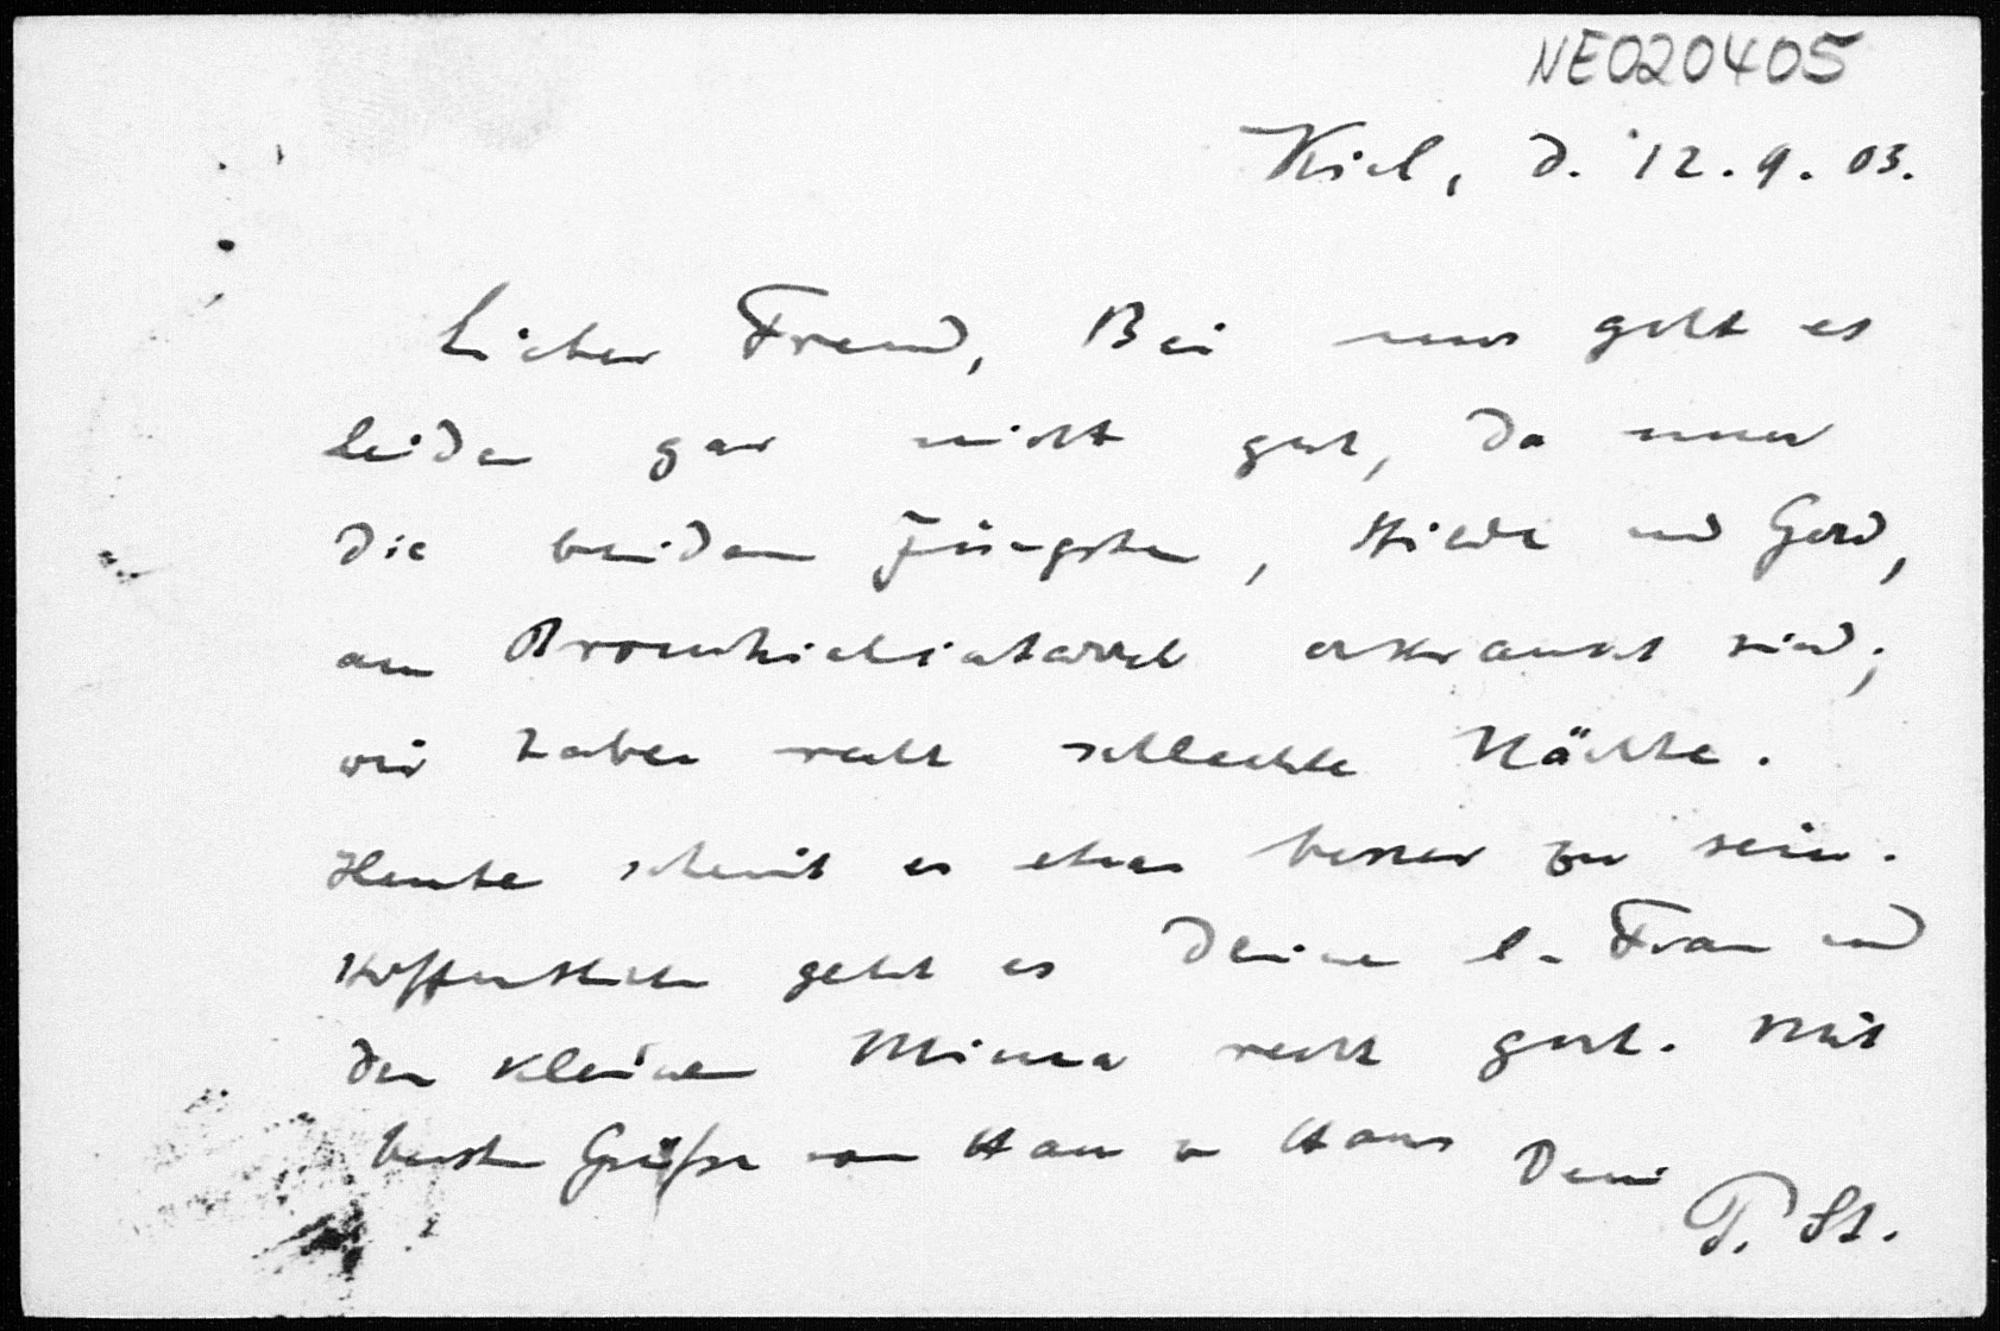 NE020405
Kiel, d. 12.9.03.
Lieber Freund, Bei uns geht es
leider gar nicht gut, da nun
die beiden Jüngsten, Hilde und Gerd,
an Bronchialkatarrh erkrankt sind;
wir haben recht schlechte Nächte.
Heute scheint es etwas besser zu sein.
Hoffentlich geht es Deiner l. Frau und
der kleinen Minna recht gut. Mit
besten Grüßen von Haus zu Haus Dein
P. St.